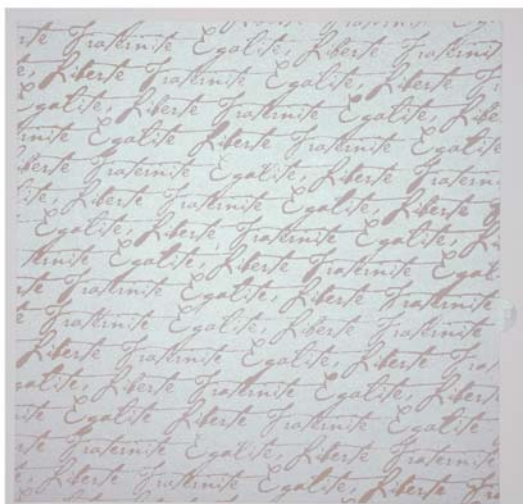 Fraternite Egalite, Liberte Fraternite
Liberte Fraternite Egalite, Liberte
Egalite, Liberte Fraternite Egalite, Liberte
Egalite Liberte Fraternite Egalite
Liberte Fraternite Egalite, Liberte Fraternite
Liberte Fraternite Egalite, Liberte
Egalite, Liberte Fraternite Egalite,
Fraternite Egalite, Liberte Fraternite Egalite
Fraternite Egalite, Liberte Fraternite
Fraternite Egalite, Liberte Fraternite
Liberte Fraternite Egalite, Liberte
Egalite, Liberte Fraternite Egalite, Liberte
Egalite Liberte Fraternite Egalite
Fraternite Egalite, Liberte Fraternite
Liberte Fraternite Egalite, Liberte